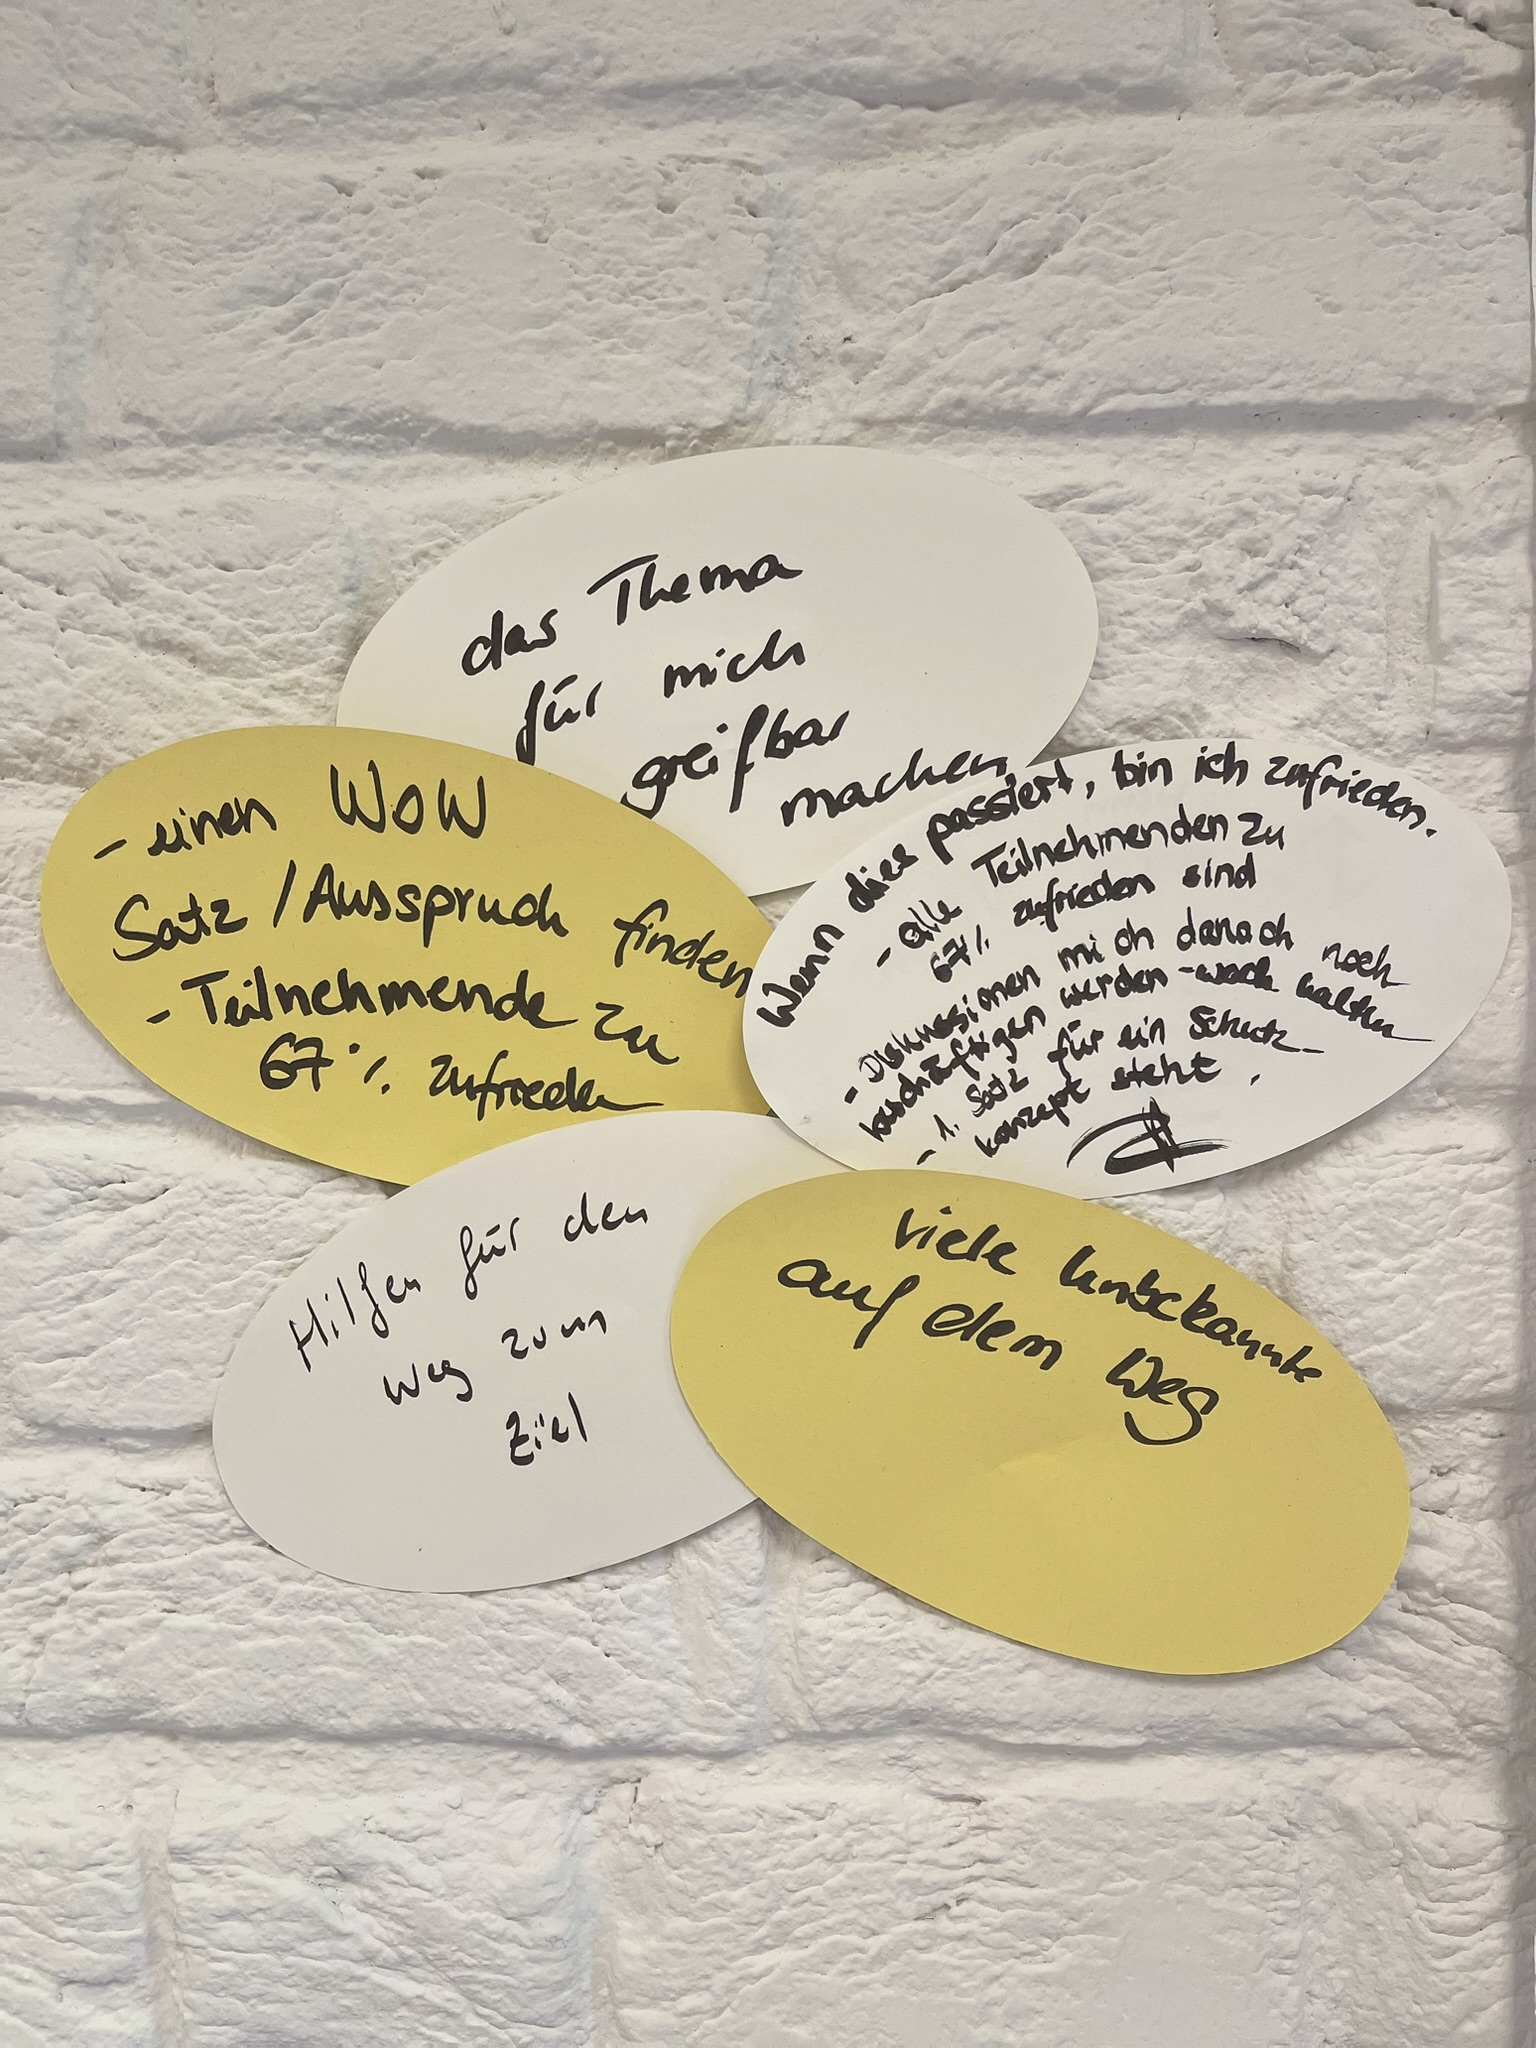 das Thema
für mich
greifbar
machen
- einen WOW
Satz / Ausspruch finden
- Teilnehmende zu
67 % zufrieden
Wenn dies passiert, bin ich zufrieden.
- alle Teilnehmenden zu
67% zufrieden sind
- Diskussionen mich danach noch
beschäftigen werden - wach halten
- 1. Satz für ein Schutz-
konzept steht.
Hilfen für den
Weg zum
Ziel
viele Unbekannte
auf dem Weg